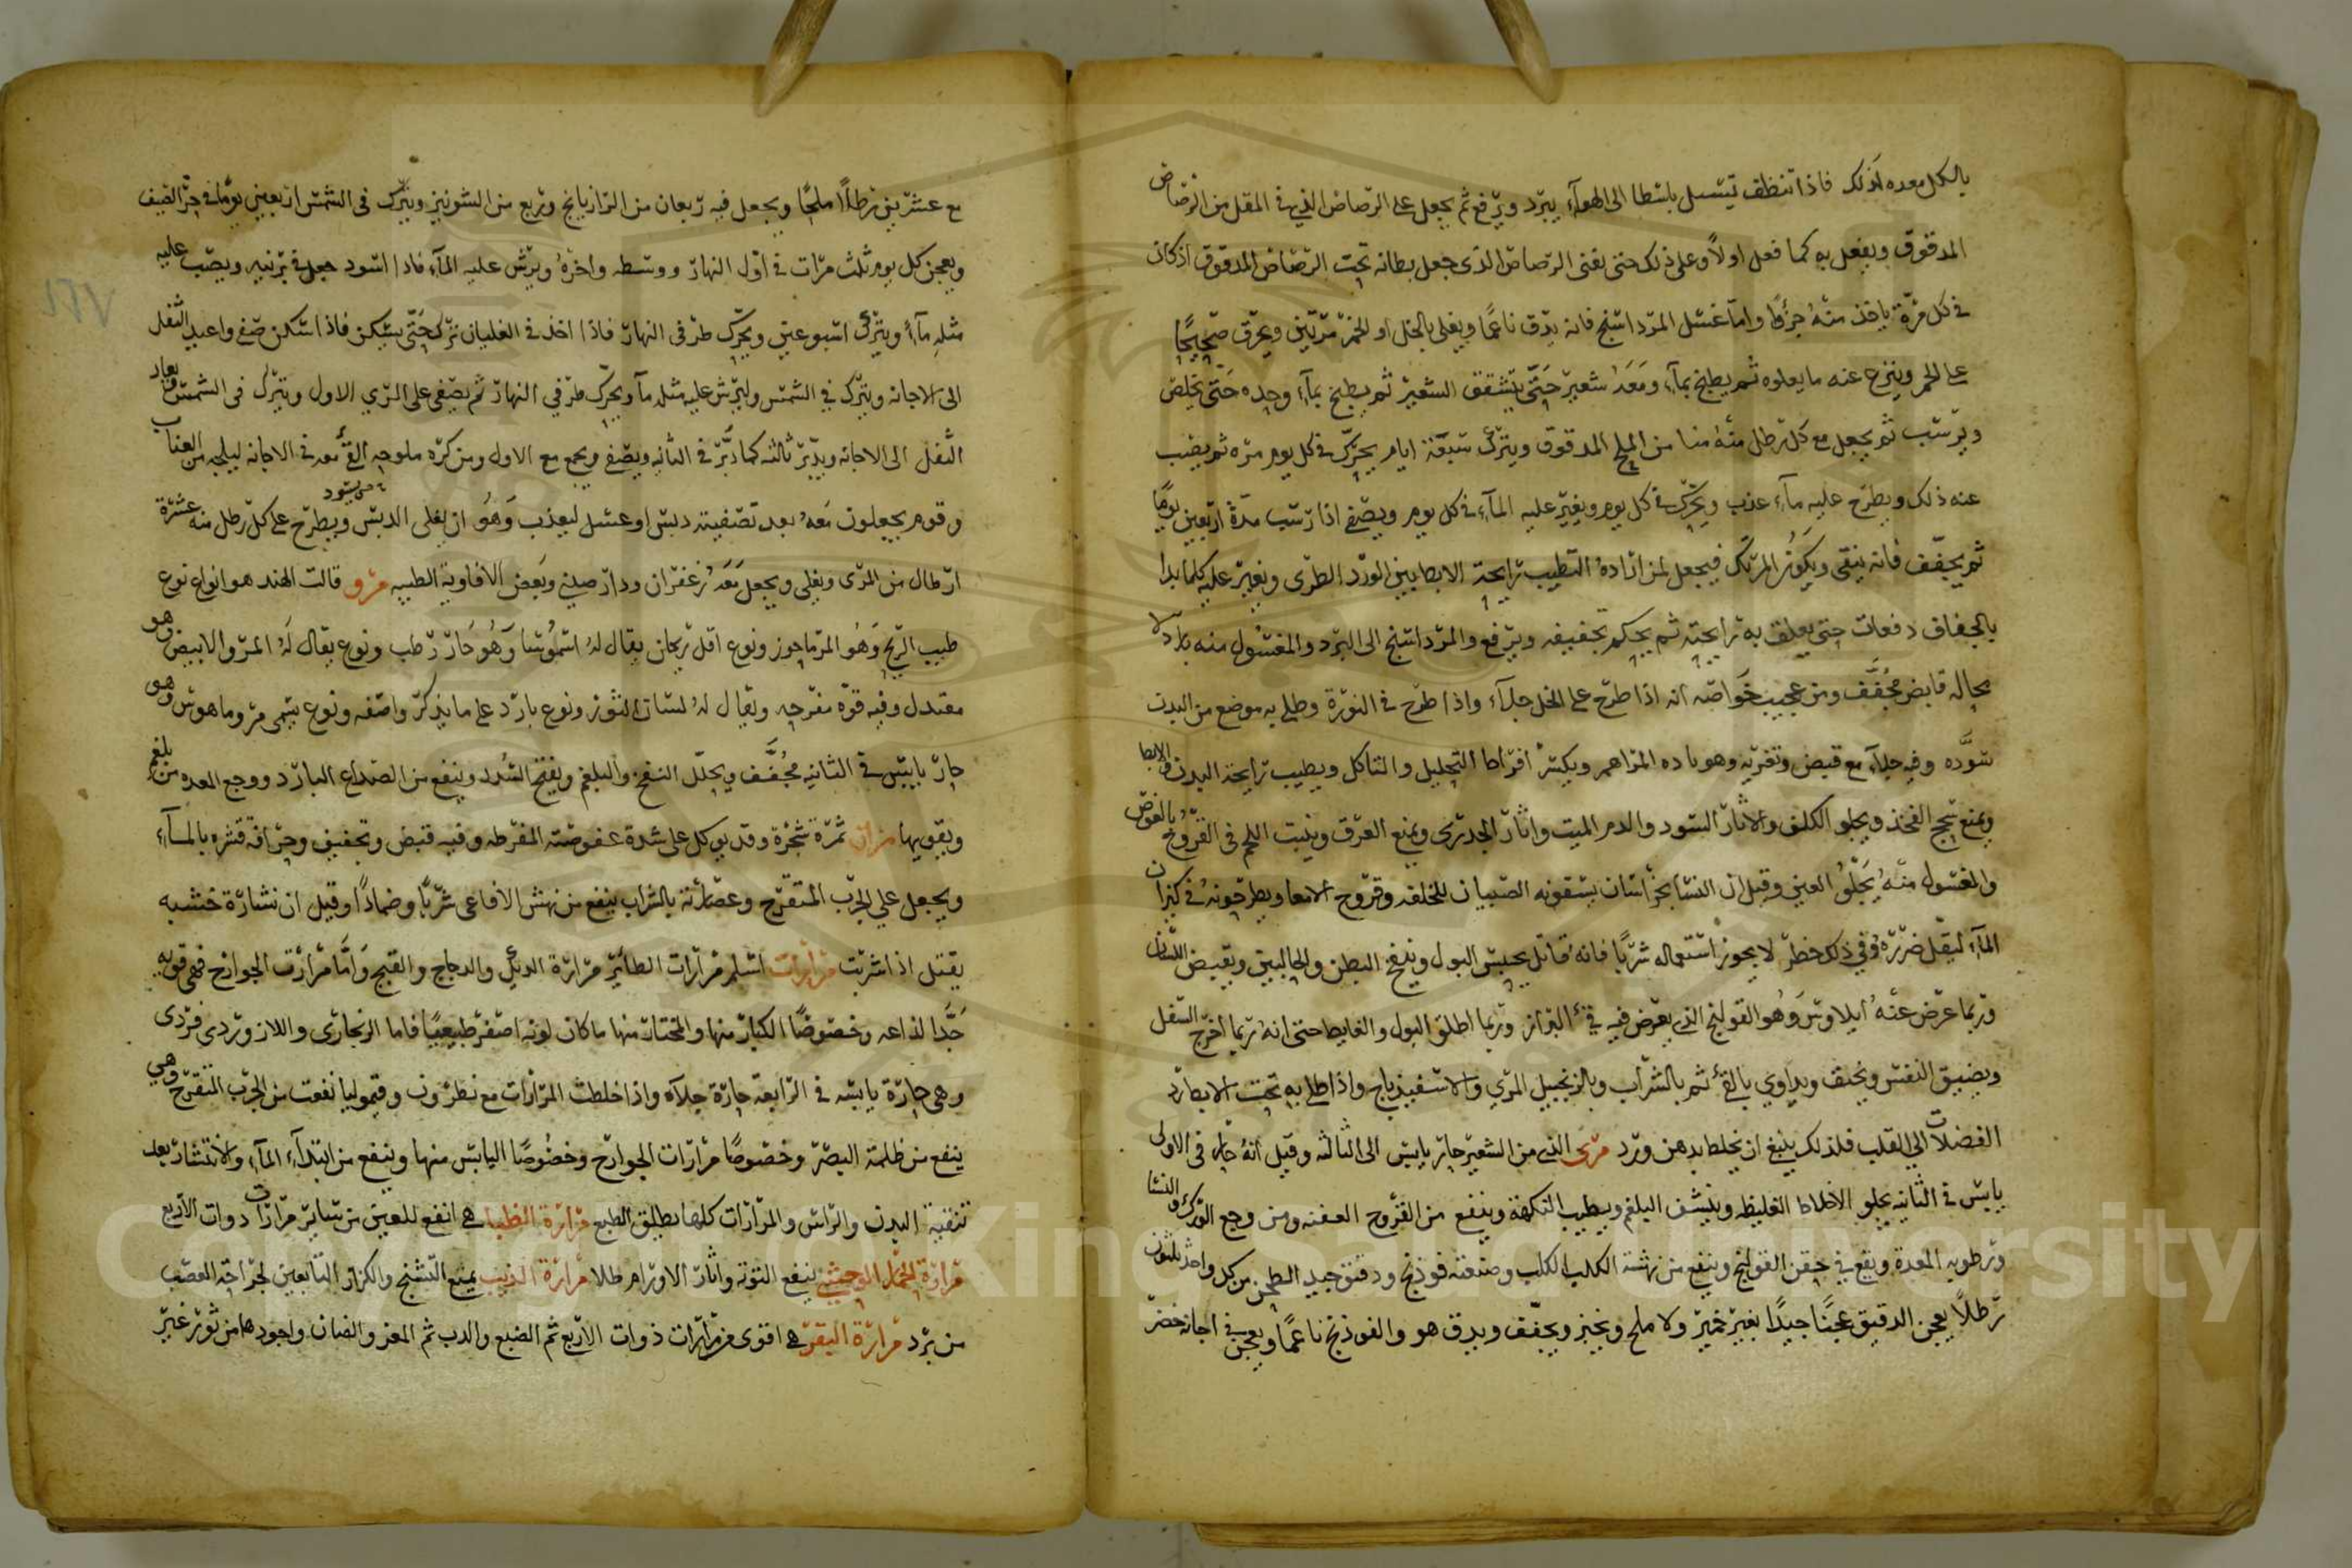 بالكل معده لذلك فاذا تنظف تيسل باسطا الى الهوآء يبرد ويرفع ثم يجعل على الرصاص الذي في المقل من الرصاص
المدقوق ويفعل به كما فعل اولاً وعلى ذلك حتى يفنى الرصاص الذى جعل بطانه تحت الرصاص المدقوق اذ كان
فى كل مرة ياخذ منه جزؤا واما غسل المرداسنج فانه يدق ناعما ويغلى بالخل او الخمر مرتين ويحرق صحيحا
على الجمر وينزع عنه ما يعلوه ثم يطبخ بمآء ومعه شعير حتى يتشقق الشعير ثم يطبخ بمآء وحده حتى يخلص
ويرسب ثم يجعل مع كل رطل منه منا من الملح المدقوق ويترك سبعة ايام يحرك في كل يوم مره ثم يصب
عنه ذلك ويطرح عليه مآء عذب ويحرك في كل يوم ويغير عليه المآء في كل يوم ويصفى اذا رسب مدة اربعين يوما
ثم يجفف فانه ينقى ويكون المرتك فيجعل لمن اراده التطييب رايحة الابط بين الورد الطرى ويغير عليه كلما بدا
بالجفاف دفعات حتى يعلق به رايحته ثم يحكم تجفيفه ويرفع والمرداسنج الى البرد والمغسول منه بارد لا
محاله قابض مجفف ومن عجيب خواصه انه اذا طرح على الخل حلاه واذا طرح في النورة وطلي به موضع من البدن
سوده وفيه جلآء مع قبض وتغريه وهو ماده المراهم ويكسر افراط التحليل والتاكل ويطيب رايحة البدن والابط
ويمنع سحج الفخذ ويجلو الكلف والاثار السود والدم الميت واثار الجدرى ويمنع العرق وينبت اللحم في القروح بالعرض
والمغسول منه يجلو العين وقيل ان النسا بخراسان يسقونه الصبيان للخلفه وقروح الامعا ويطرحونه في كيزان
المآء ليقل ضرره وفي ذلك خطر لا يجوز استعماله شربا فانه قاتل يحبس البول وينفخ البطن والحالبين ويبيض اللسان
وربما عرض عنه ايلاوس وهو القولنج الذي يعرض فيه في البراز وربما اطلق البول والغايط حتى انه ربما اخرج السفل
ويضيق النفس ويخنق ويداوى بالقئ ثم بالشراب وبالزنجبيل المرى والاسفيذباج واذا طلي به تحت الابط رد
الفضلات الى القلب فلذلك ينبغي ان يخلط بدهن ورد مرى الذي من الشعير حار يابس الى الثالثه وقيل انه حار فى الاولى
يابس في الثانيه يجلو الاخلاط الغليظه وينشف البلغم ويطيب النكهة وينفع من القروح العفنه ومن وجع الورك والنسا
ورطوبه المعدة ويقع في حقن القولنج وينفع من نهشة الكلب الكلب وصنعته فوذنج ودقيق جيد الطحن من كل واحد ثلثون
رطلا يعجن الدقيق عجنا جيدا بغير خمير ولا ملح ويخبز ويجفف ويدق هو والفوذنج ناعما ويعجن في اجانه خضر
مع عشرين رطلا ملحا ويجعل فيه ربعان من الرازيانج وربع من الشونيز ويترك فى الشمس اربعين يوما فى حر الصيف
ويعجن كل يوم ثلث مرات في اول النهار ووسطه واخره ويرش عليه المآء فاذا اسود جعل في برنيه ويصب عليه
مثله مآء ويترك اسبوعين ويحرك طرفى النهار فاذا اخذ في الغليان ترك حتى يسكن فاذا اسكن صفي واعيد الثفل
الى الاجانه ويترك في الشمس وليرش عليه مثله مآ ويحرك طرفي النهار ثم يصفى على المري الاول ويترك فى الشمس ويعاد
الثفل الى الاجانه ويدبر ثالثه كما دبر في الثانيه ويصفى ويجمع مع الاول ومن كره ملوحه القى معه في الاجانه ليلحه من العناب
وقوم يجعلون معه بعد تصفيته دبس او عسل ليعذب وهو ان يغلى الدبس حتى يسود ويطرح على كل رطل منه عشرة
ارطال من المرى ويغلى ويجعل معه زعفران ودار صيني وبعض الافاوية الطيبه مرو قالت الهند هو انواع نوع
طيب الريح وهو المرماحوز ونوع اقل ريحان يقال له اسموسا وهو حار رطب ونوع يقال له المرو الابيض وهو
معتدل وفيه قوة مفرحه ويقال له لسان الثور ونوع بارد على ما يذكر واصفه ونوع يسمى مرو ماهوس وهو
حار يابس في الثانيه مجفف ويحلل النفخ والبلغم ويفتح السدد وينفع من الصداع البارد ووجع المعده من بلغم
ويقويها مران ثمرة شجرة وقد يوكل على شدة عفوصته المفرطه وفيه قبض وتجفيف وحراقة قشره بالمآء
ويجعل على الجرب المتقرح وعصارته بالشراب ينفع من نهش الافاعى شربا وضمادا وقيل ان نشارة خشبه
يقتل اذا شربت مرارات اسلم مرارات الطائر مرارة الديك والدجاج والقبج واما مرارت الجوارح فهي قويه
جدا لذاعه وخصوصا الكبار منها والمختار منها ما كان لونه اصفر طبيعيا فاما الزنجارى واللازوردى فردى
وهي حارة يابسه في الرابعة حارة جلآه واذا خلطت المرارات مع نطرون وقيموليا نفعت من الجرب المتقرح وهي
ينفع من ظلمة البصر وخصوصا مرارات الجوارح وخصوصا اليابس منها وينفع من ابتدآء المآء والانتشار بعد
تنقية البدن والراس والمرارات كلها يطلق الطبع مرارة الظبيا هي انفع للعين من ساير مرارات دوات الاربع
مرارة الحمار الوحشي ينفع التوته واثار الاورام طلا مرارة الذيب يمنع التشنج والكزاز التابعين لجراحة العصب
من برد مرارة البقر هي اقوى من مرارات ذوات الاربع ثم الضبع والدب ثم المعز والضان واجودها من ثور غير
Copyright © King Saud University